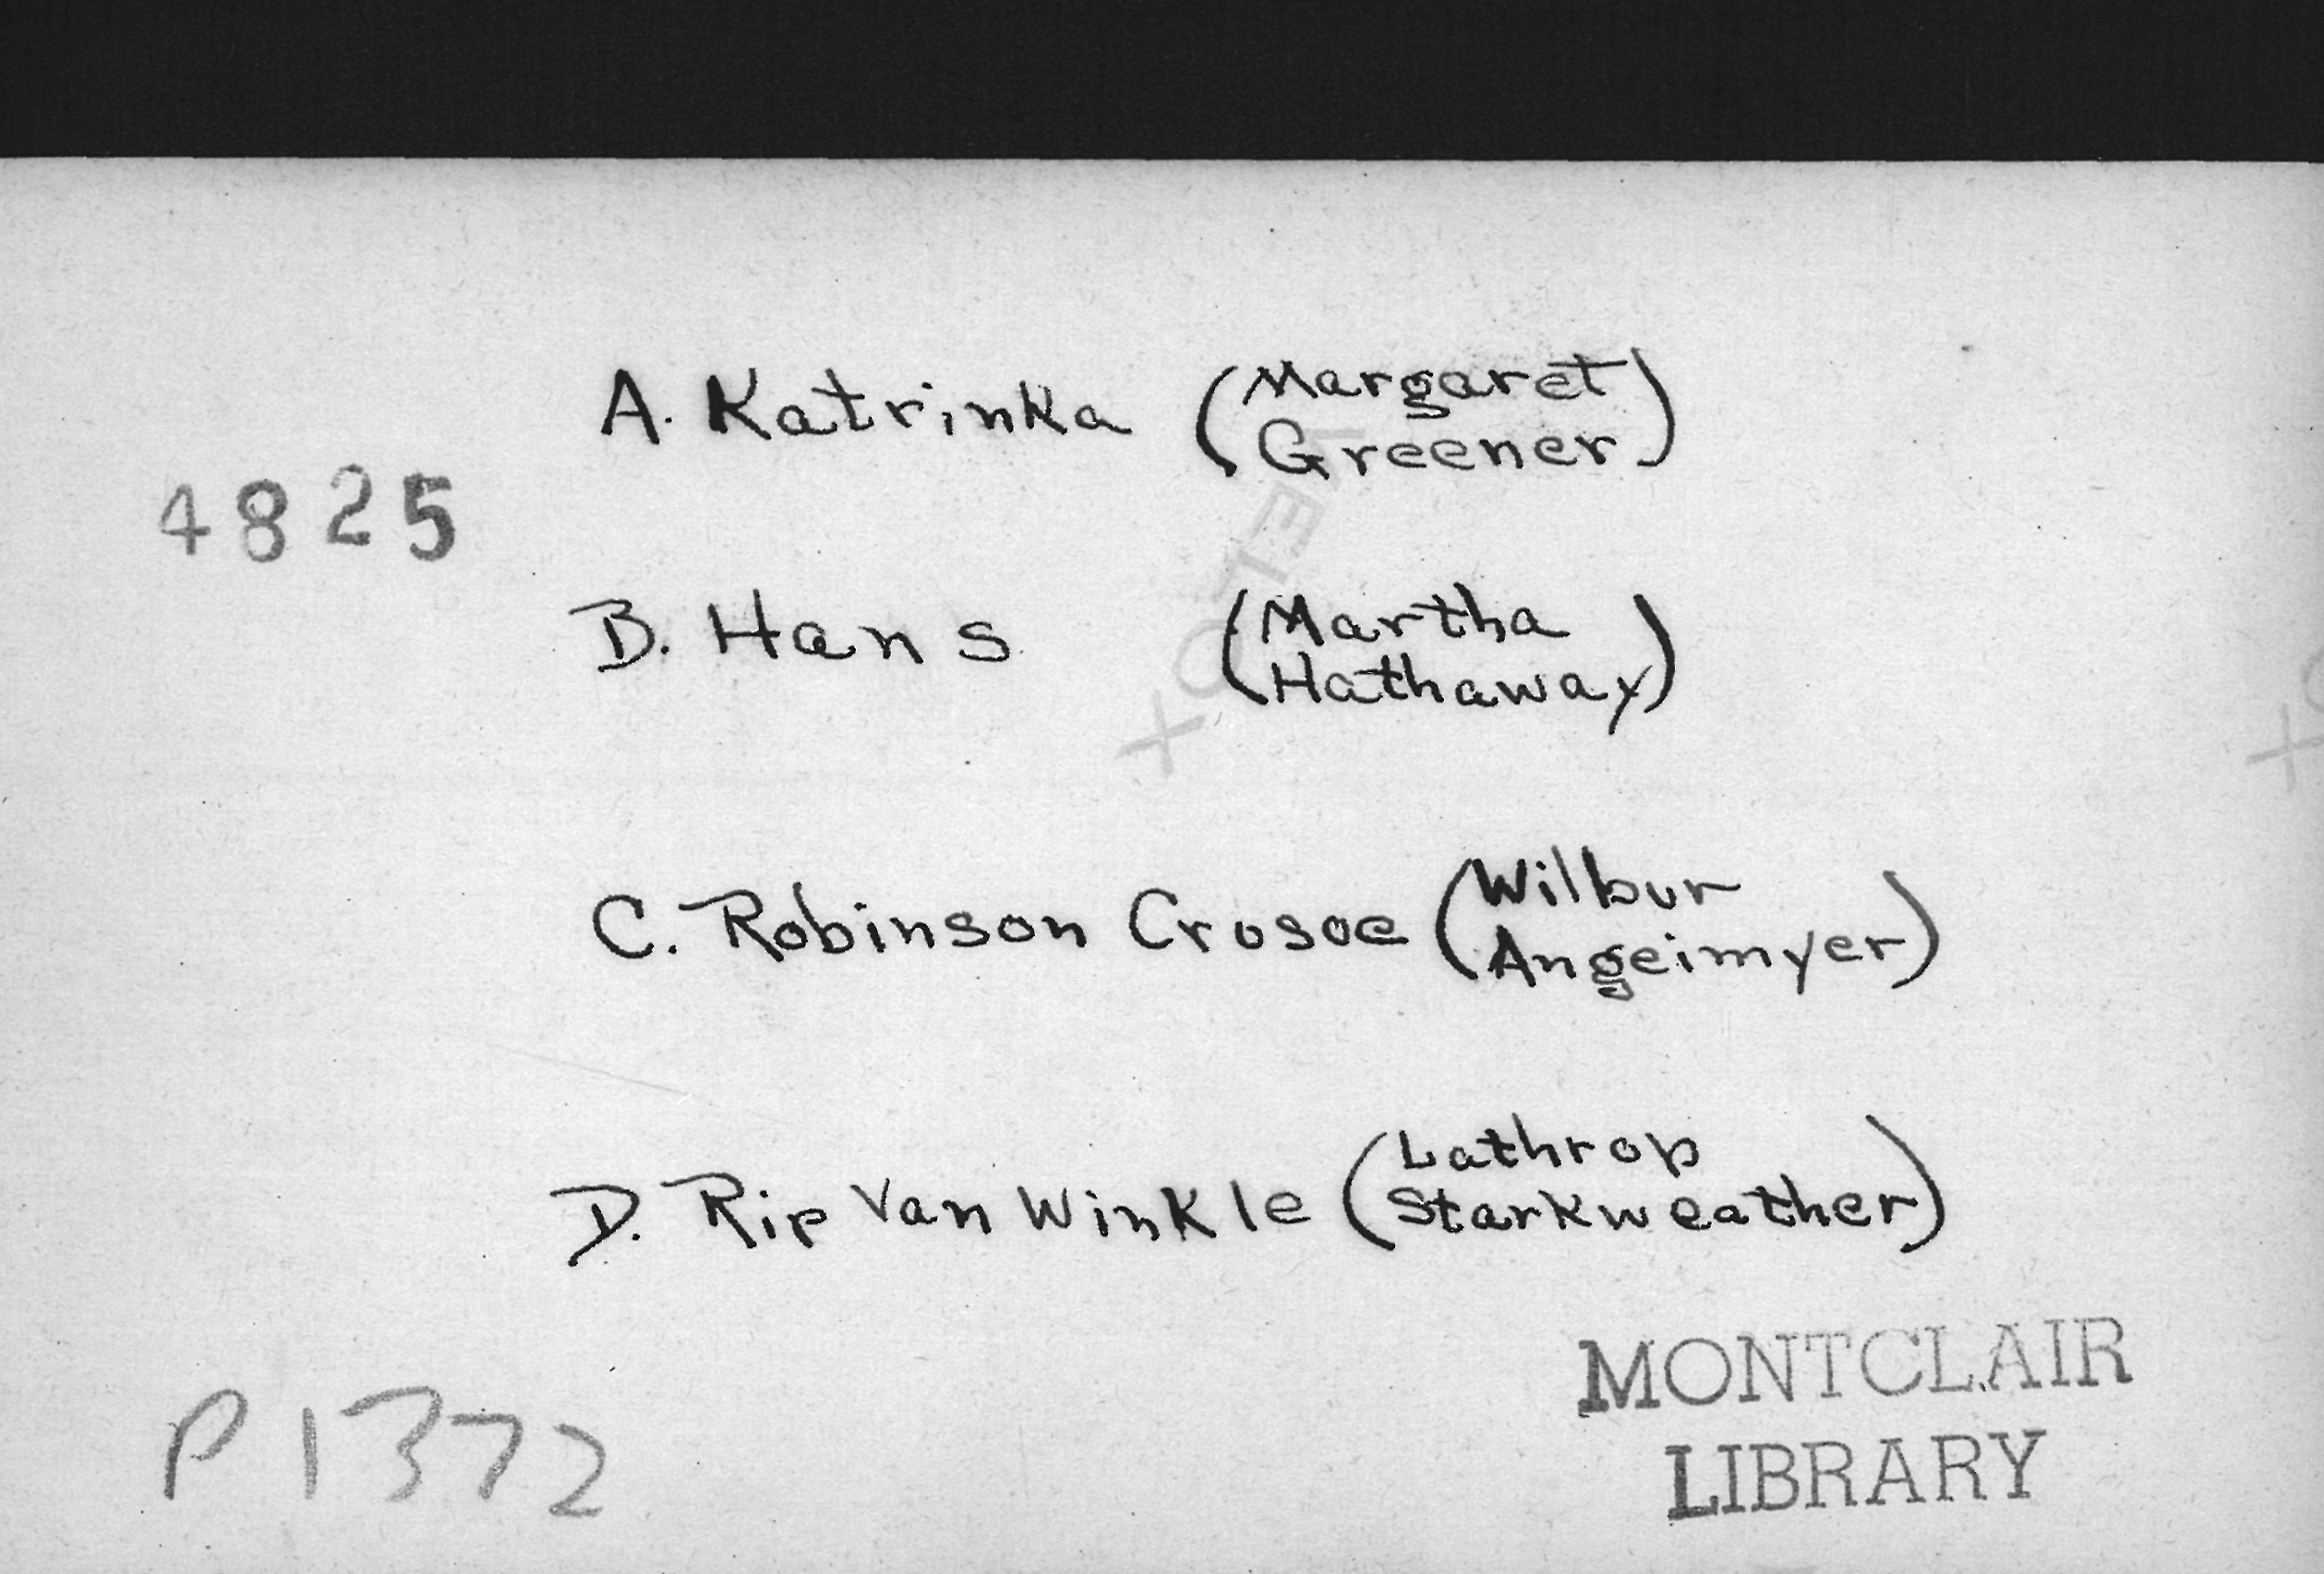 A. Katrinka (Margaret
Greener)
4825
B. Hans (Martha
Hathaway)
VELOX
C. Robinson Crusoe (Wilbur
Angeimyer)
D. Rip Van Winkle (Lathrop
Starkweather)
MONTCLAIR
LIBRARY
P1372